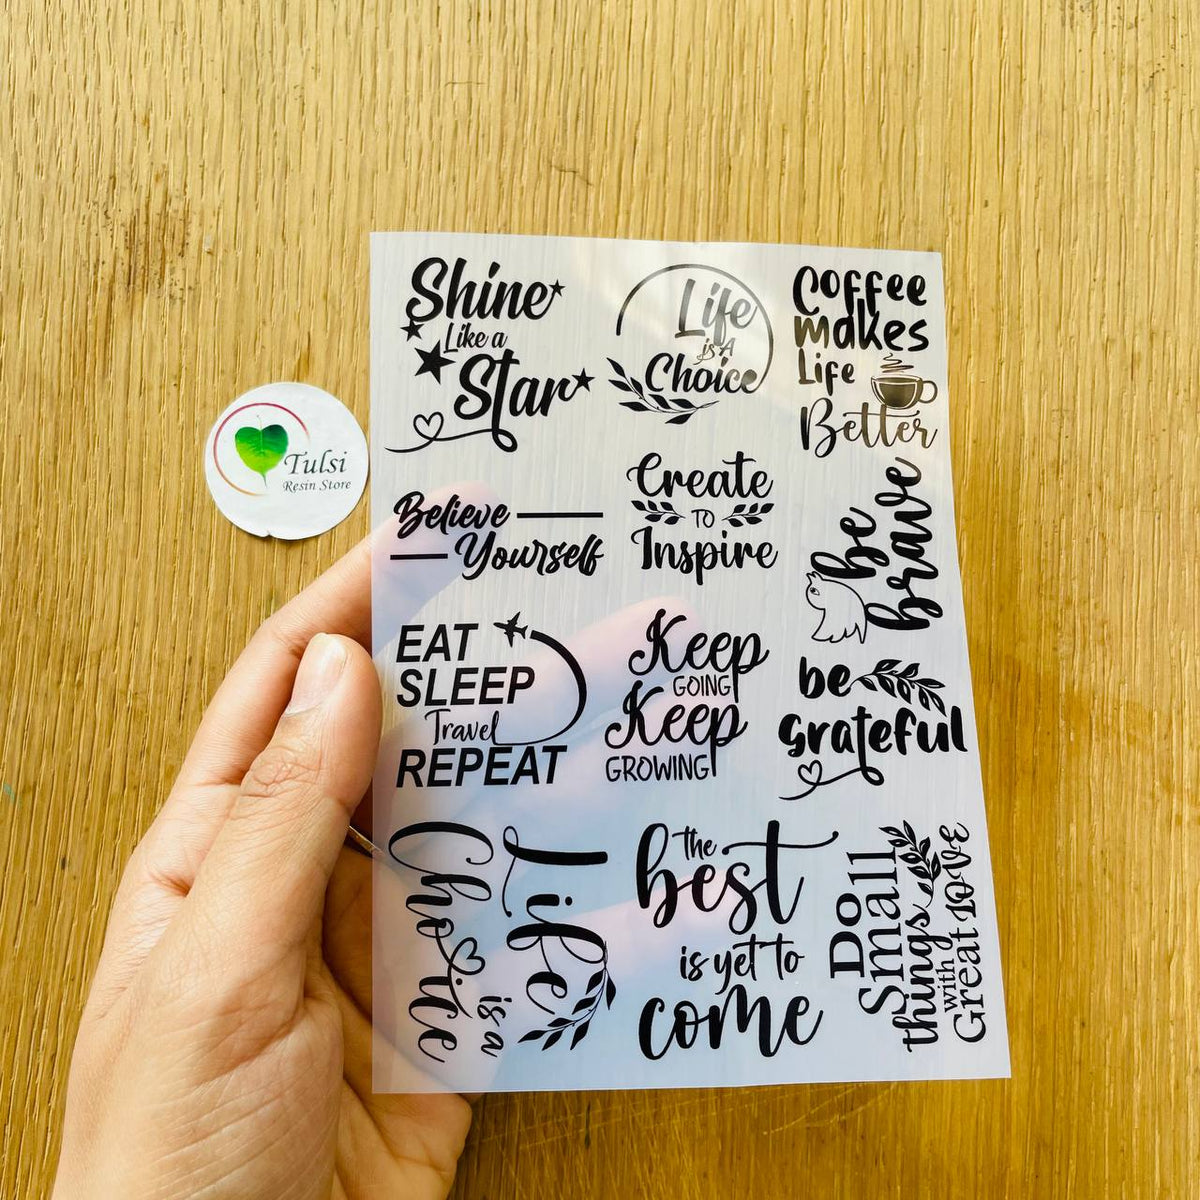 Shine
Like a
Star
Life
is A
Choice
Coffee
makes
Life
Better
Tulsi
Resin Store
Believe
Yourself
Create
TO
Inspire
be
brave
EAT
SLEEP
Travel
REPEAT
Keep
GOING
Keep
GROWING
be
grateful
Life
is a
Choice
the
best
is yet to
come
Do
Small
things
with
Great love